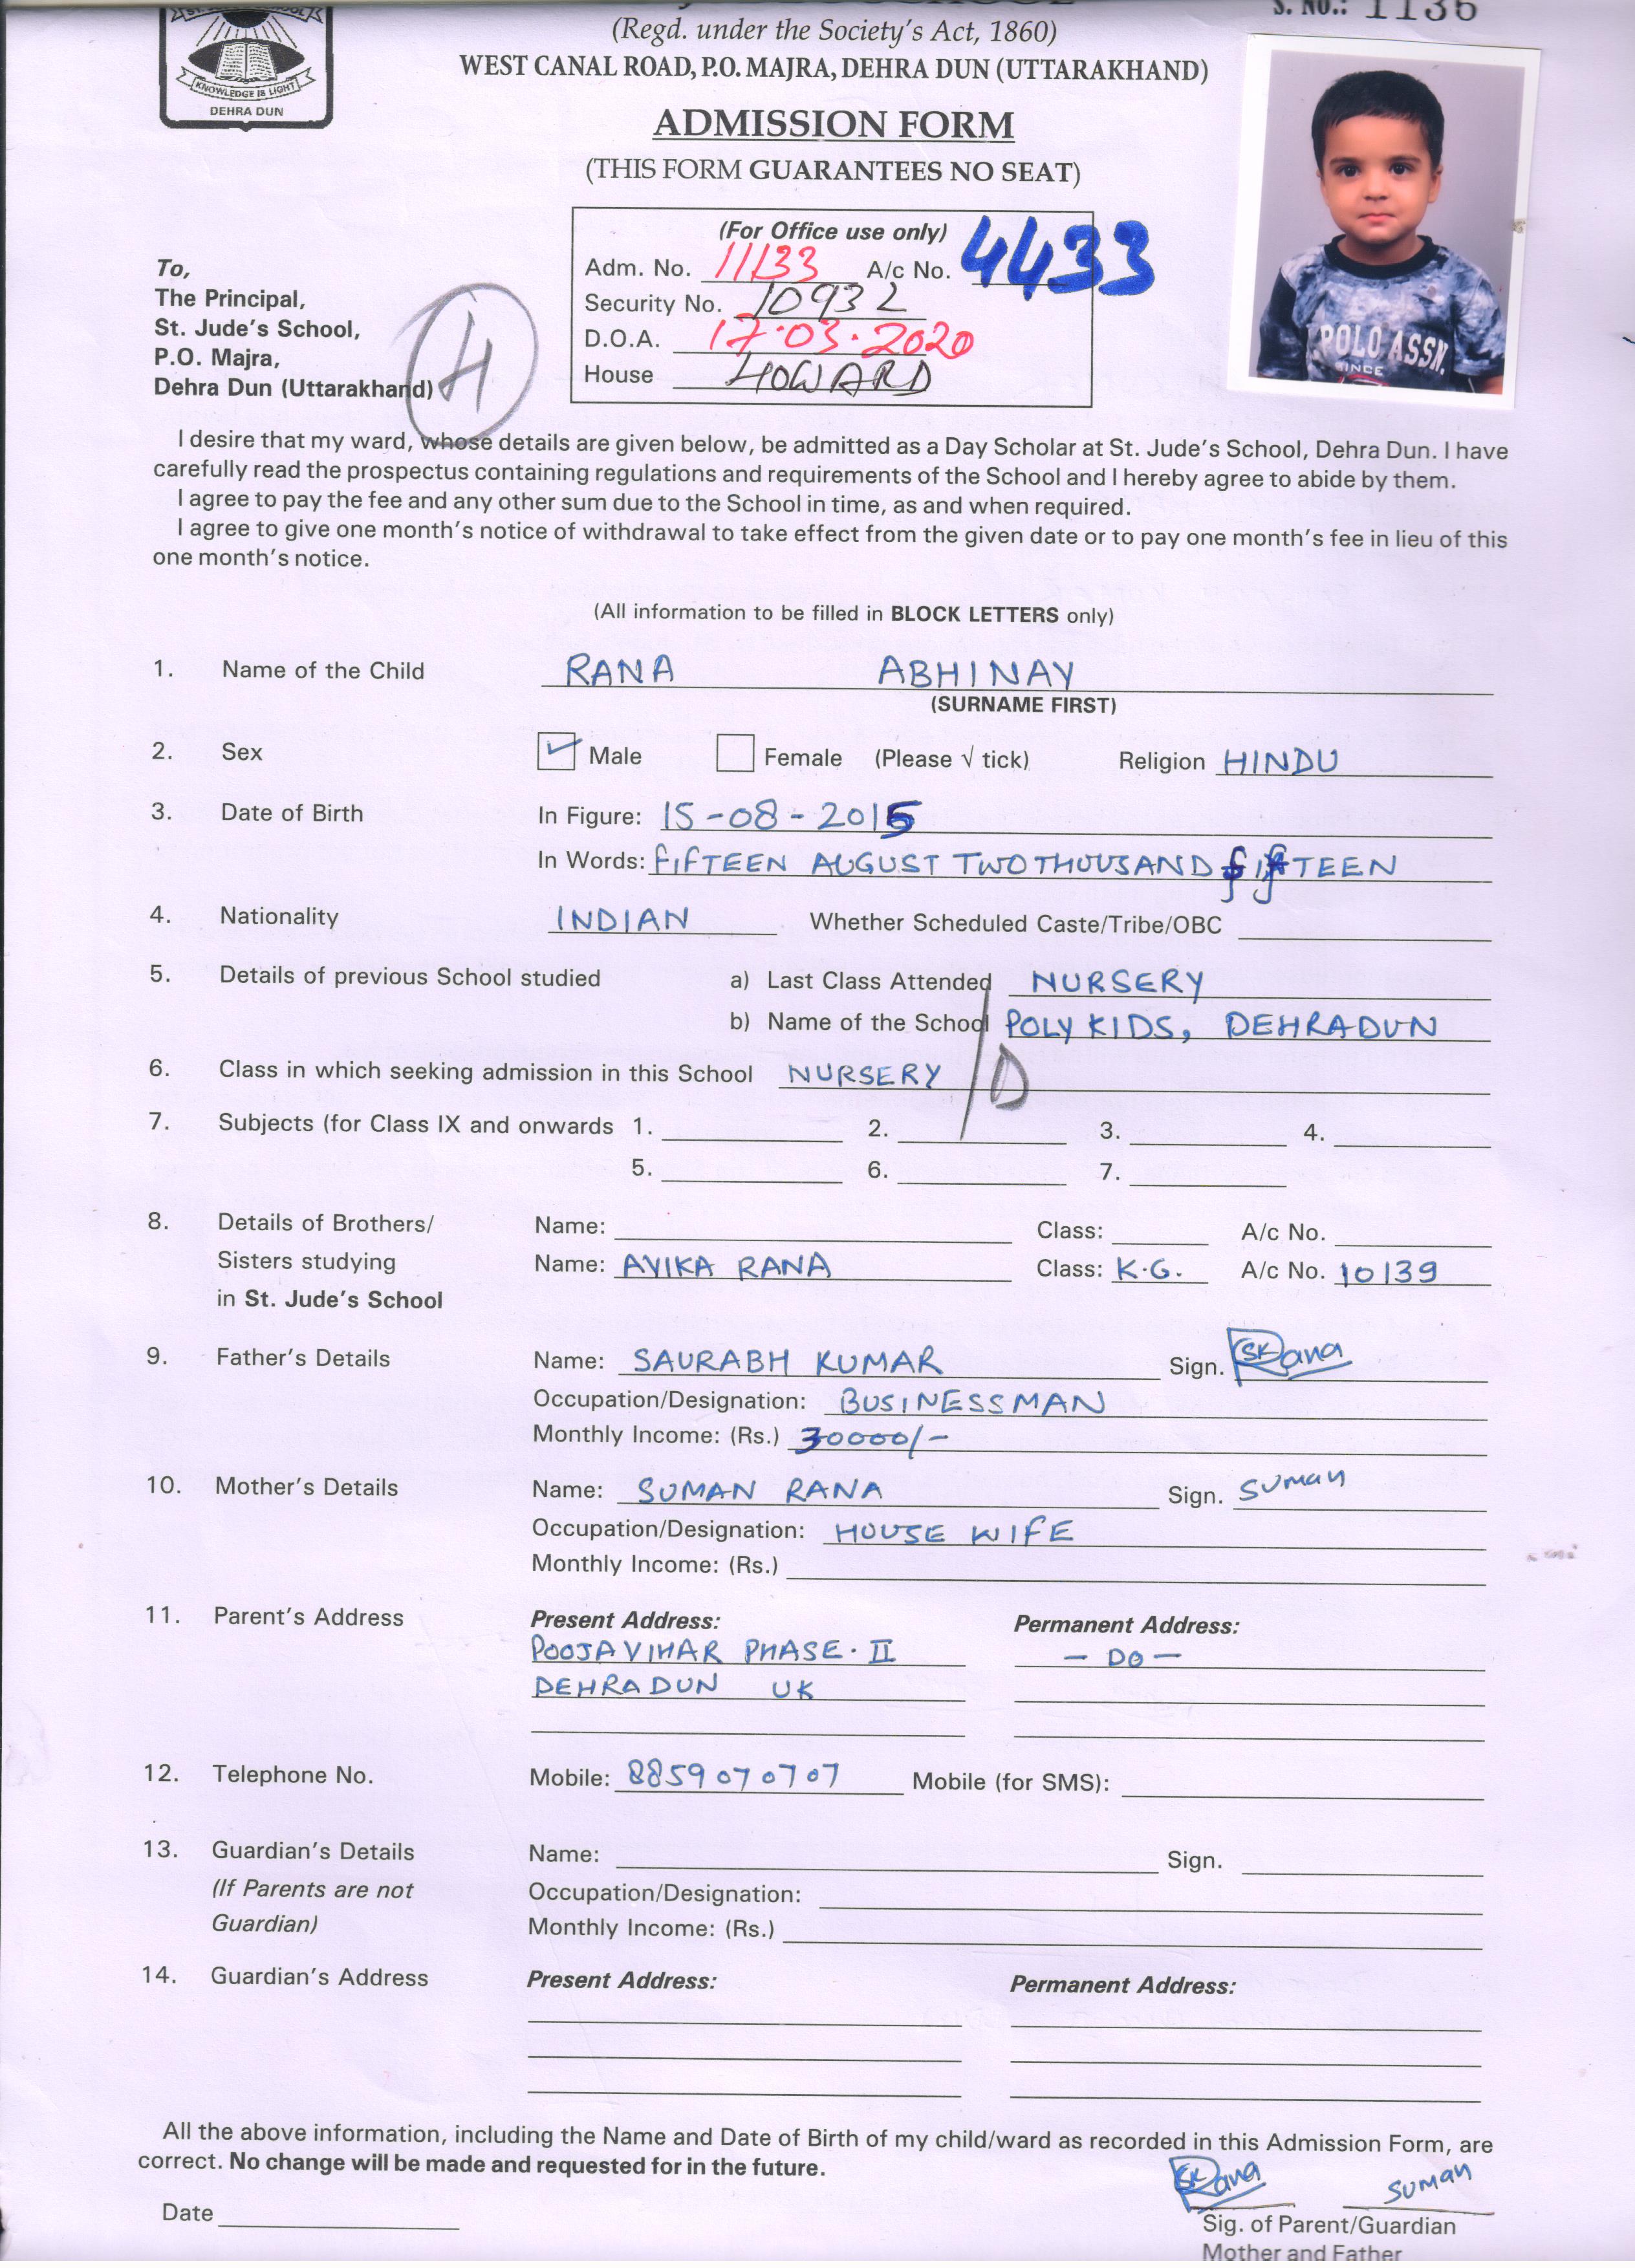 KNOWLEDGE IS LIGHT
DEHRA DUN
S. NO.: 1136
(Regd. under the Society's Act, 1860)
WEST CANAL ROAD, P.O. MAJRA, DEHRA DUN (UTTARAKHAND)
ADMISSION FORM
(THIS FORM GUARANTEES NO SEAT)
(For Office use only)
Adm. No. 11133 A/c No. 4433
Security No. 10932
D.O.A. 17.03.2020
House HOWARD
POLO ASSN.
SINCE
To,
The Principal,
St. Jude's School,
P.O. Majra,
Dehra Dun (Uttarakhand)
H
I desire that my ward, whose details are given below, be admitted as a Day Scholar at St. Jude's School, Dehra Dun. I have
carefully read the prospectus containing regulations and requirements of the School and I hereby agree to abide by them.
I agree to pay the fee and any other sum due to the School in time, as and when required.
I agree to give one month's notice of withdrawal to take effect from the given date or to pay one month's fee in lieu of this
one month's notice.
(All information to be filled in BLOCK LETTERS only)
1. Name of the Child RANA ABHINAY
(SURNAME FIRST)
2. Sex Male Female (Please √ tick) Religion HINDU
3. Date of Birth In Figure: 15-08-2015
In Words: FIFTEEN AUGUST TWO THOUSAND fifTEEN
4. Nationality INDIAN Whether Scheduled Caste/Tribe/OBC
5. Details of previous School studied a) Last Class Attended NURSERY
b) Name of the School POLY KIDS, DEHRADUN
6. Class in which seeking admission in this School NURSERY / D
7. Subjects (for Class IX and onwards 1. 2. 3. 4.
5. 6. 7.
8. Details of Brothers/ Name: Class: A/c No.
Sisters studying Name: AVIKA RANA Class: K.G. A/c No. 10139
in St. Jude's School
9. Father's Details Name: SAURABH KUMAR Sign. SKRana
Occupation/Designation: BUSINESSMAN
Monthly Income: (Rs.) 30000/-
10. Mother's Details Name: SUMAN RANA Sign. Suman
Occupation/Designation: HOUSE WIFE
Monthly Income: (Rs.)
11. Parent's Address Present Address: Permanent Address:
POOJA VIHAR PHASE. II - DO -
DEHRADUN UK
12. Telephone No. Mobile: 8859070707 Mobile (for SMS):
13. Guardian's Details Name: Sign.
(If Parents are not Occupation/Designation:
Guardian) Monthly Income: (Rs.)
14. Guardian's Address Present Address: Permanent Address:
All the above information, including the Name and Date of Birth of my child/ward as recorded in this Admission Form, are
correct. No change will be made and requested for in the future.
SKRana Suman
Date
Sig. of Parent/Guardian
Mother and Father